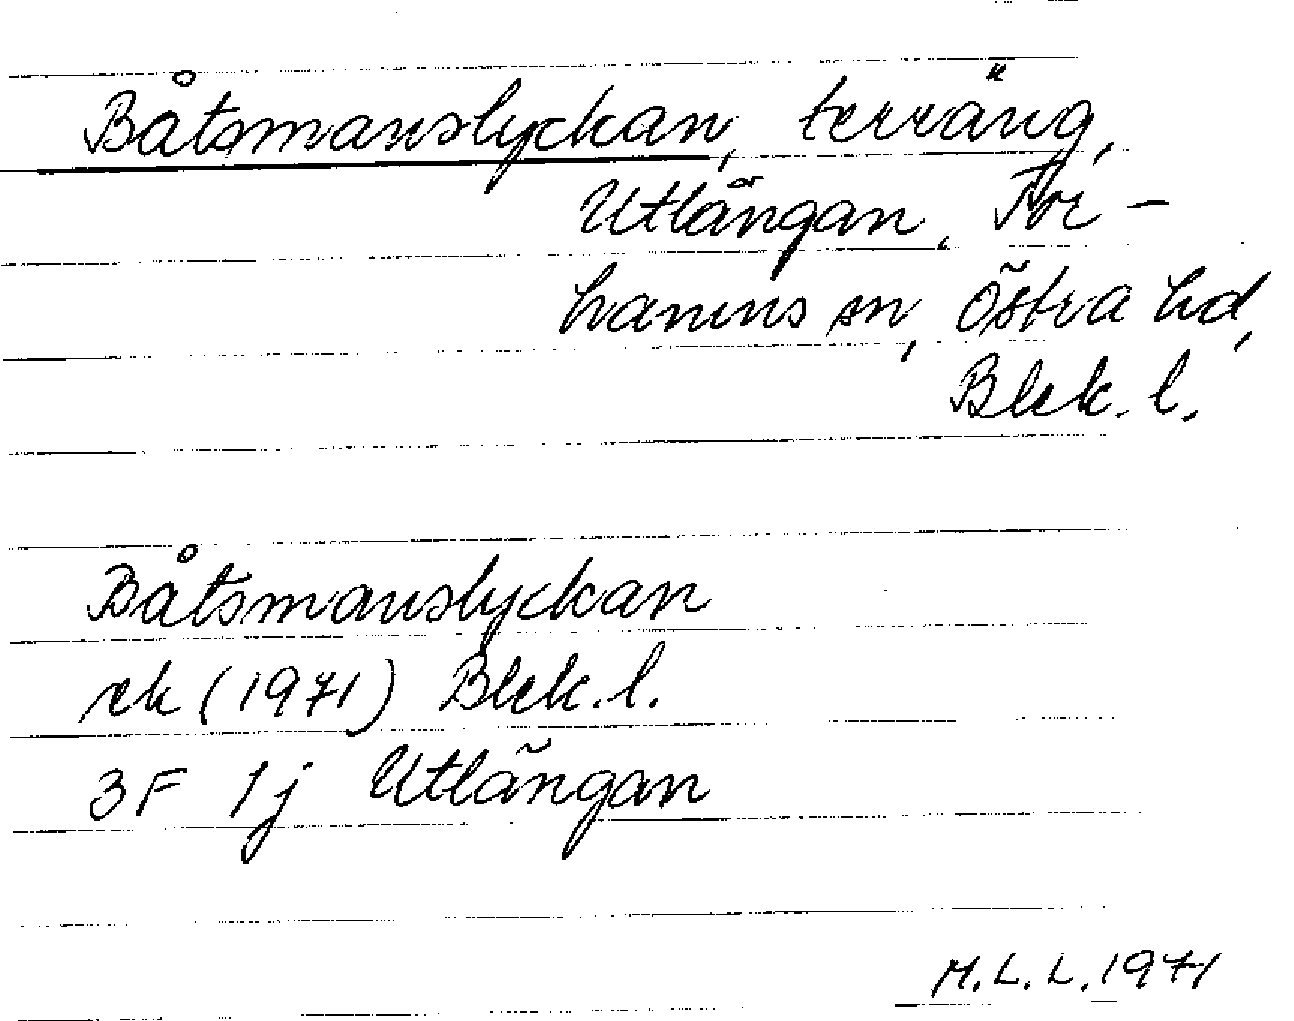 Båtsmanslyckan, terräng,
Utlängan, Tor-
hamns sn, Östra hd,
Blek. l.
Båtsmanslyckan
rek (1971) Blek. l.
3F 1j Utlängan
M.L.L. 1971